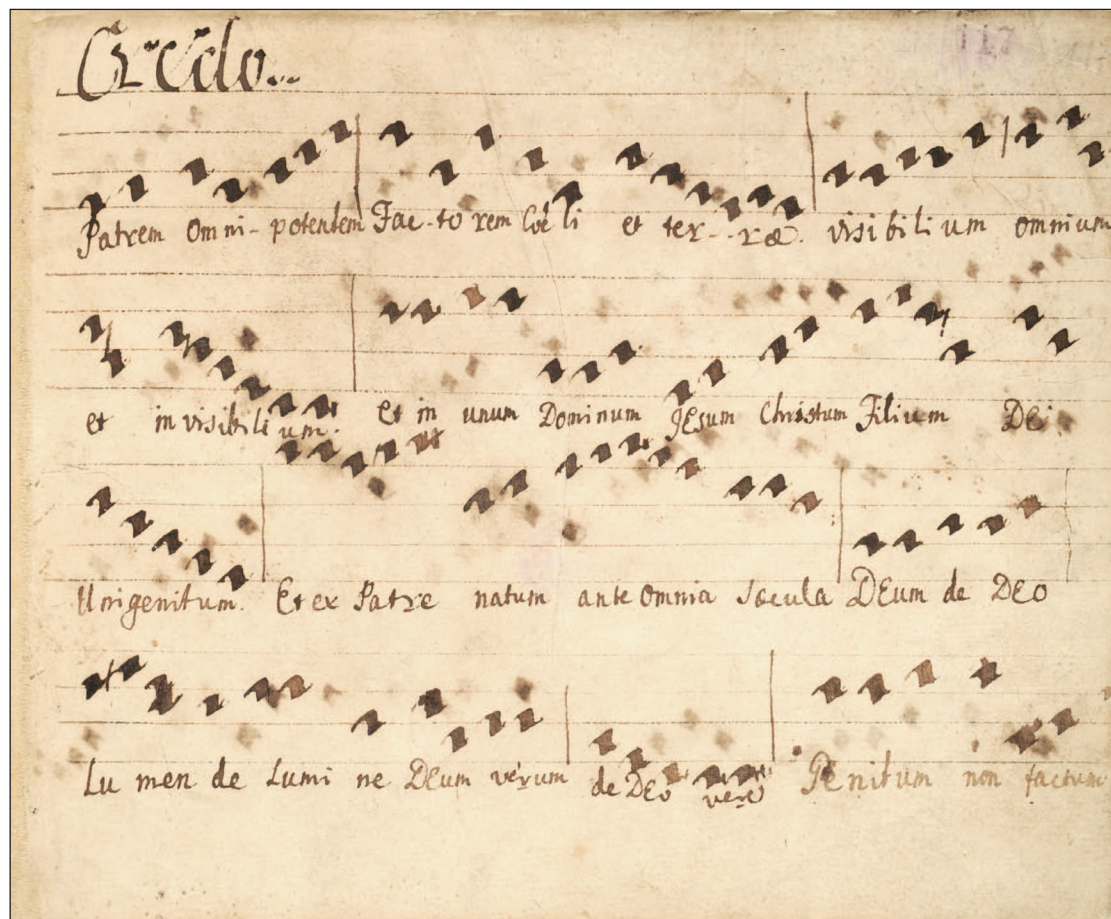 Credo...
117
Patrem Omni-potentem Fac-to rem Coeli et ter--ræ. visibili um omnium
et in visibili um. et in unum Dominum JEsum Christum Filium DEi
Unigenitum. Et ex Patre natum ante Omnia sæcula DEum de DEO
Lu men de Lumi ne DEum verum de DEO vero GEnitum non factum